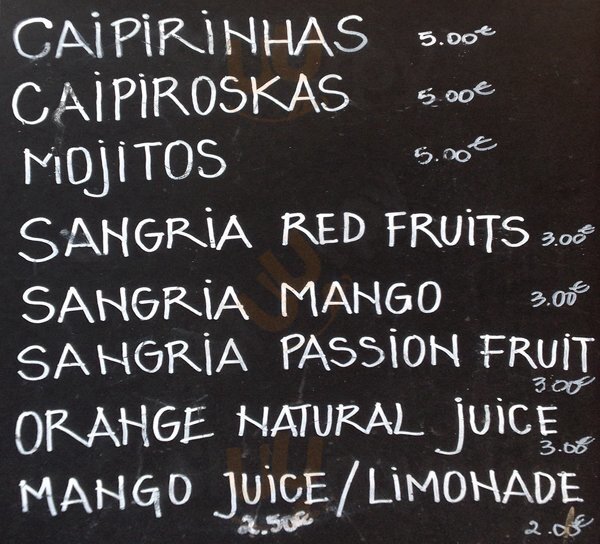 CAIPIRINHAS 5.00€
CAIPIROSKAS 5.00€
MOJITOS 5.00€
SANGRIA RED FRUITS 3.00€
SANGRIA MANGO 3.00€
SANGRIA PASSION FRUIT
3.00€
ORANGE NATURAL JUICE
3.00€
MANGO JUICE / LIMONADE
2.50€ 2.00€